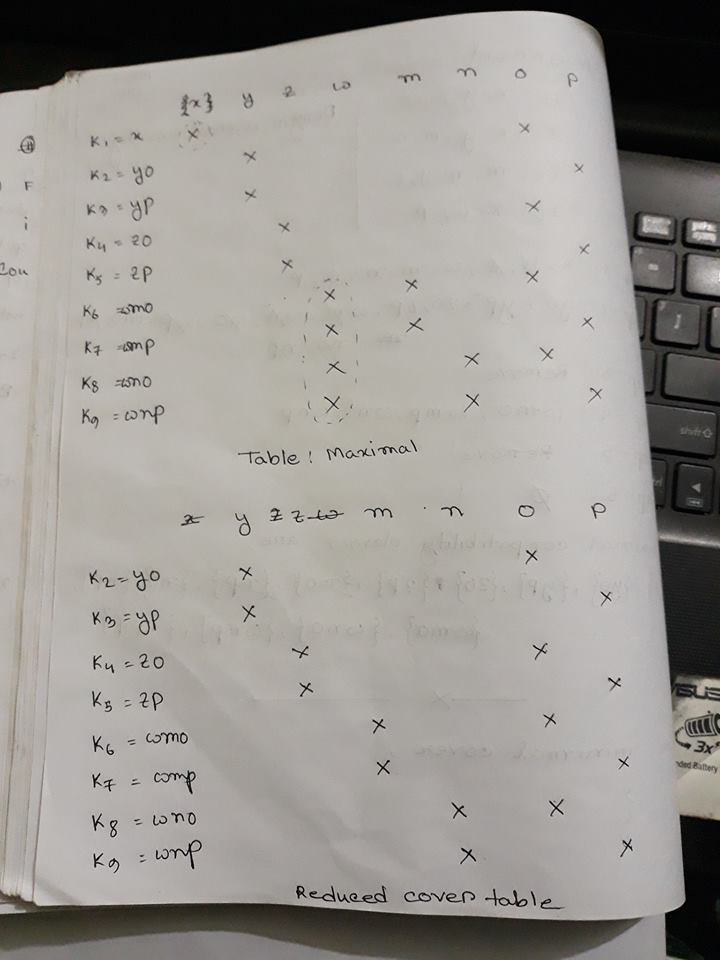 {x} y z ω m n o p
K1 = x × ×
K2 = yo × ×
K3 = yp × ×
K4 = zo ×
K5 = zp × × ×
K6 = ωmo × ×
K7 = ωmp × × ×
K8 = ωno × × ×
K9 = ωnp × × ×
Table : Maximal
x y z z ω m n o p
K2 = yo × ×
K3 = yp × ×
K4 = zo × ×
K5 = zp × ×
K6 = ωmo × ×
K7 = ωmp × ×
K8 = ωno × ×
K9 = ωnp × ×
Reduced cover table
F
i
Con
shift
ASUS
3x
nded Battery